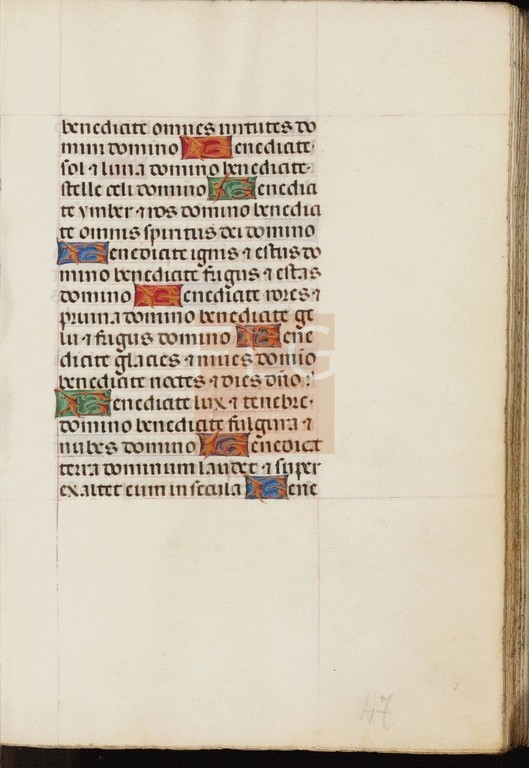 benedicite omnes uirtutes do
mini domino Benedicite
sol ⁊ luna domino benedicite
stelle celi domino Benedici
te ymber ⁊ ros domino benedici
te omnis spiritus dei domino
Benedicite ignis ⁊ estus do
mino benedicite frigus ⁊ estas
domino Benedicite rores ⁊
pruina domino benedicite ge
lu ⁊ frigus domino Bene
dicite glacies ⁊ niues domīo
benedicite noctes ⁊ dies dño
Benedicite lux ⁊ tenebre
domino benedicite fulgura ⁊
nubes domino Benedicat
terra dominum laudet ⁊ super
exaltet eum in secula Bene
47